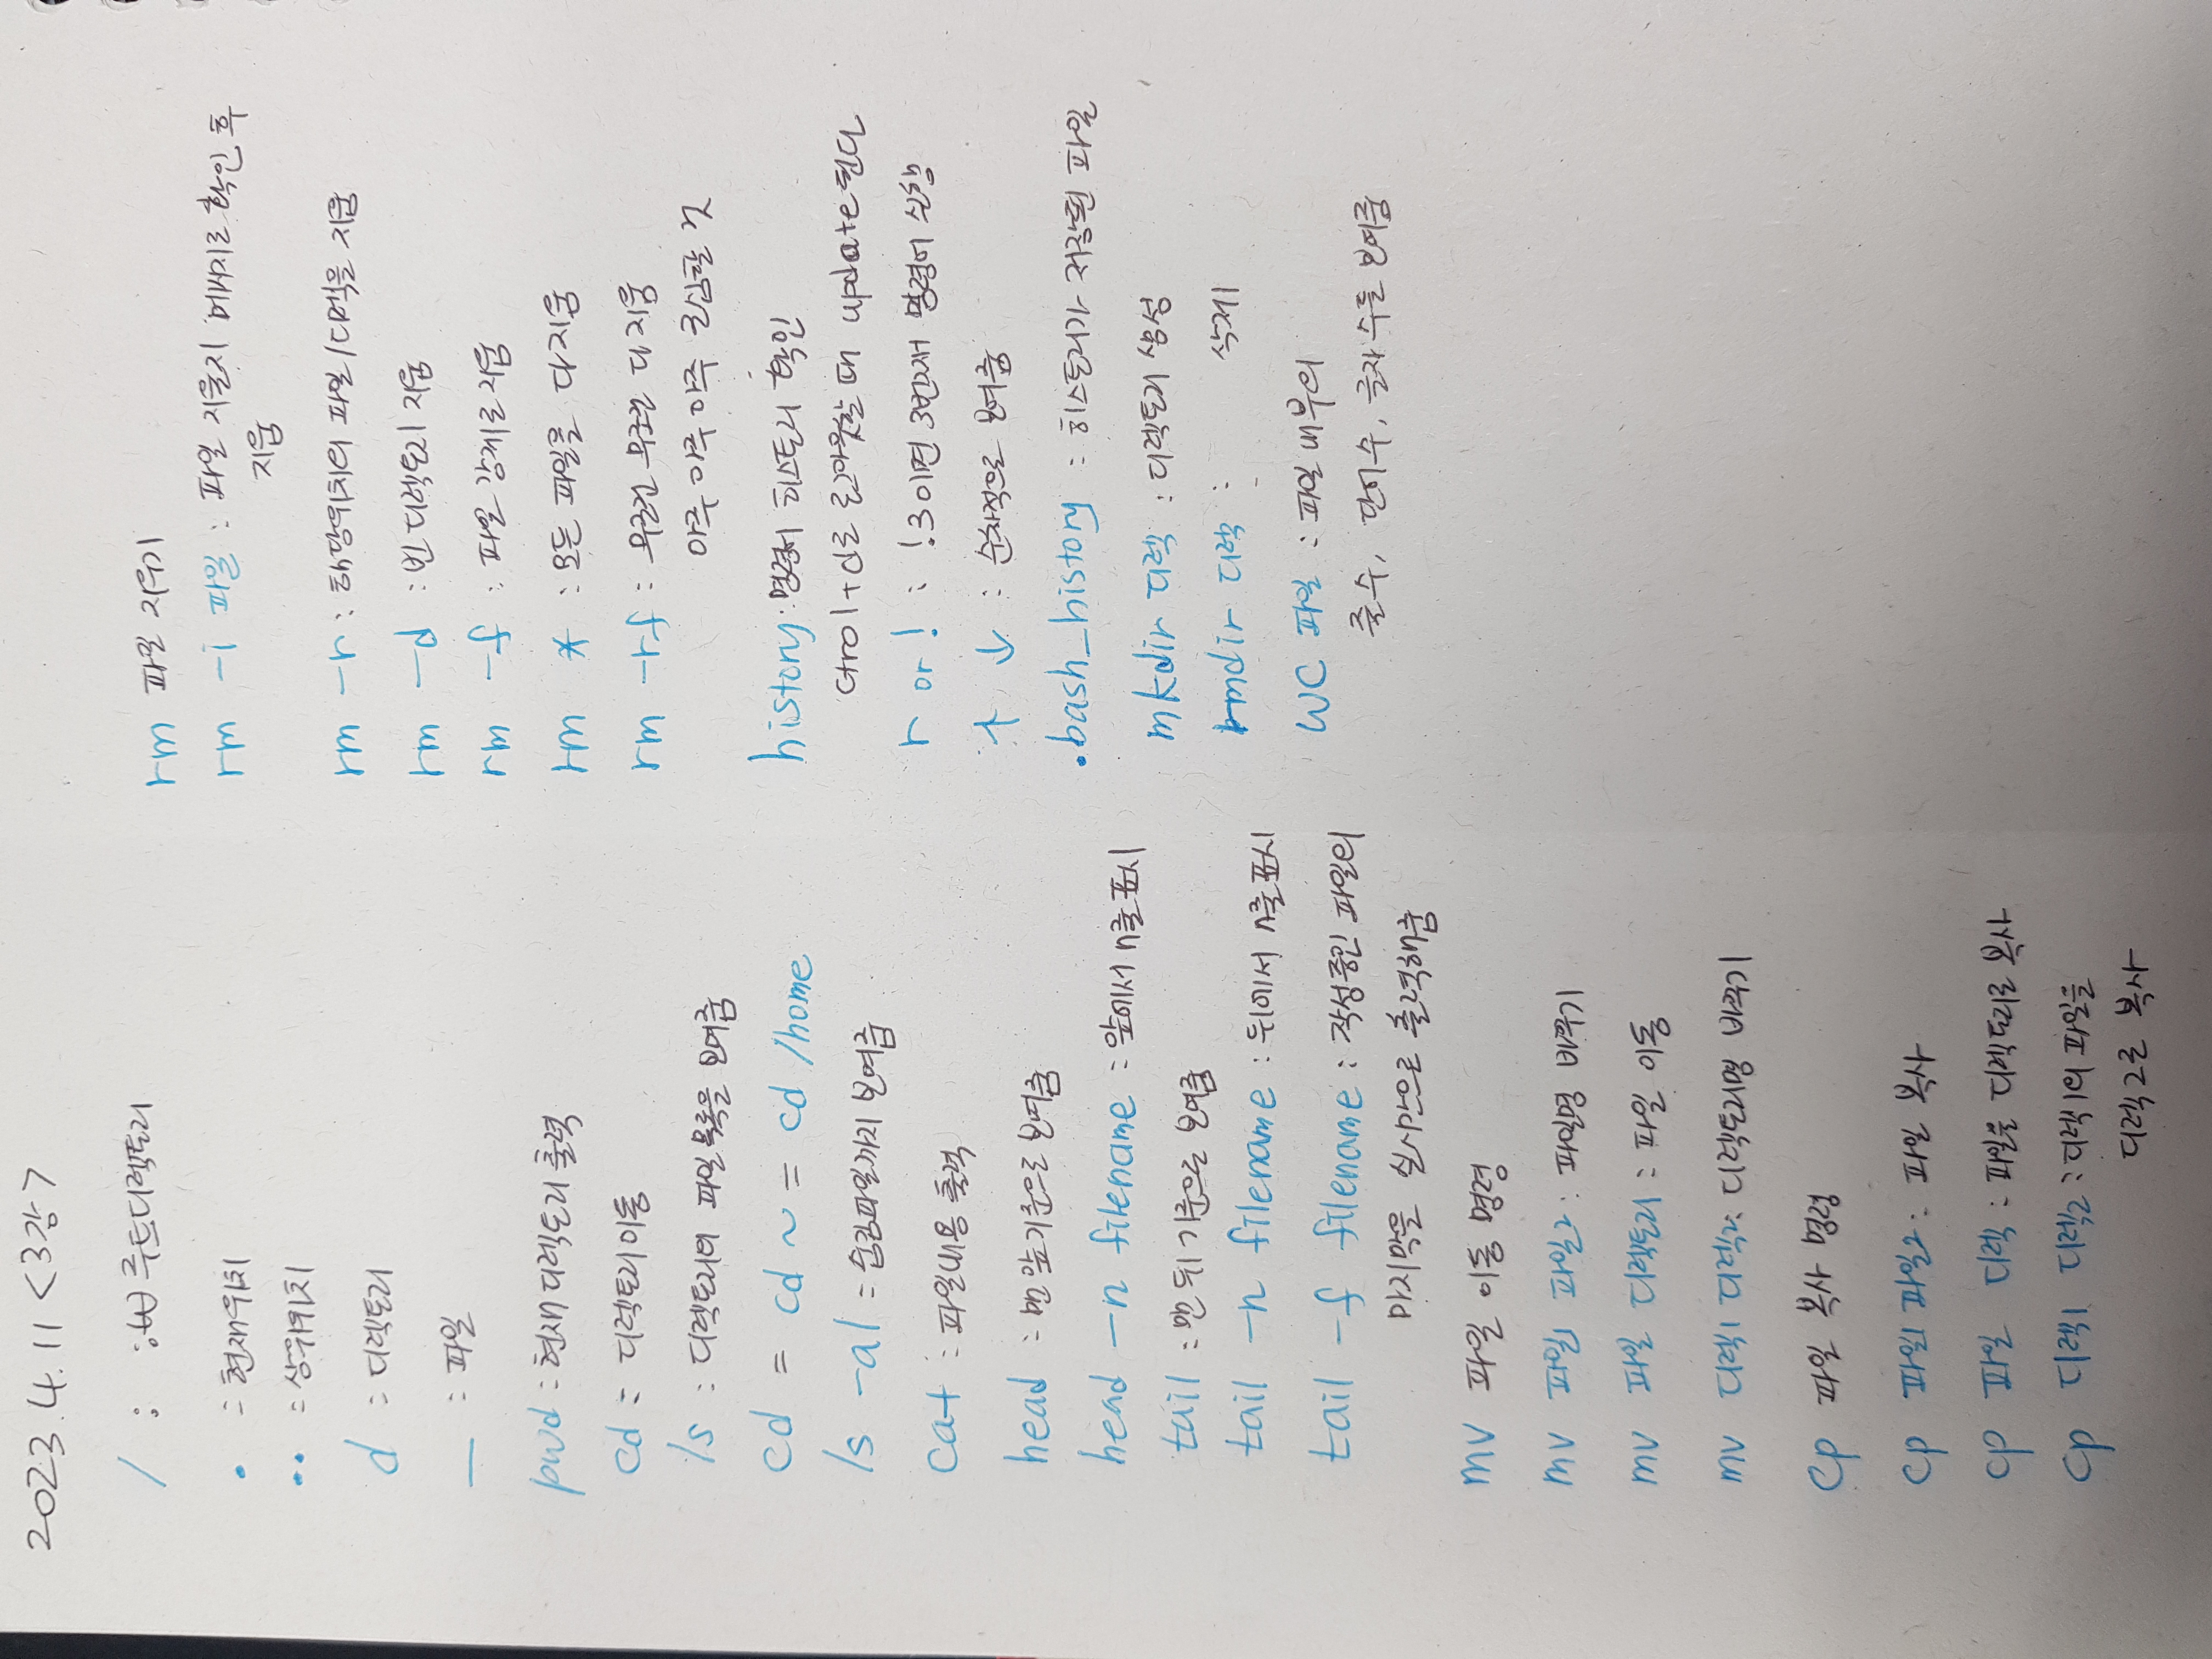 2023.4.11 <3강>
/ : 루트디렉토리
. : 현재위치
.. : 상위위치
d : 디렉토리
- : 파일
pwd : 현재디렉토리 출력
cd : 디렉토리 이동
ls : 디렉토리의 파일목록을 보여줌
cd = cd ~ = cd /home
ls -al : 숨김파일까지 보여줌
cat : 파일내용 출력
head : 맨 앞 기준으로 보여줌
head -n filename : 앞에서 n줄 표시
tail : 맨 뒤 기준으로 보여줌
tail -n filename : 뒤에서 n줄 표시
tail -f filename : 작성중인 파일의
마지막을 실시간으로 출력해줌
mv 파일 이동 명령
mv 파일1 파일2 : 파일명 바꾸기
mv 파일 디렉토리 : 파일 이동
mv 디렉1 디렉2 : 디렉토리명 바꾸기
cp 파일 복사 명령
cp 파일1 파일2 : 파일 복사
cp 파일 디렉 : 파일을 디렉토리로 복사
cp 디렉1 디렉2 : 디렉1의 파일을
디렉2로 복사
rm 파일 지우기
rm -i 파일 : 파일 지울지 메세지로 확인 후
지움
rm -r : 해당위치의 파일/디렉을 지움
rm -d : 빈 디렉토리 지움
rm -f : 파일 강제로 지움
rm * : 모든 파일을 다 지움
rm -rf : 무조건 무조건 다 지움
아주 아주 아주 조심할 것
history : 명령어 히스토리 확인
ctrol+d로 로그아웃할 때 update된다
r or ! : !3이면 3번째 명령어 실행
↑ ↓ : 순차적으로 보여줌
.bash_history : 히스토리가 저장된 파일
mkdir 디렉 : 디렉토리 생성
rmdir 디렉 : 삭제
wc 파일 : 파일 내부의
줄 수, 단어수, 글자수를 보여줌